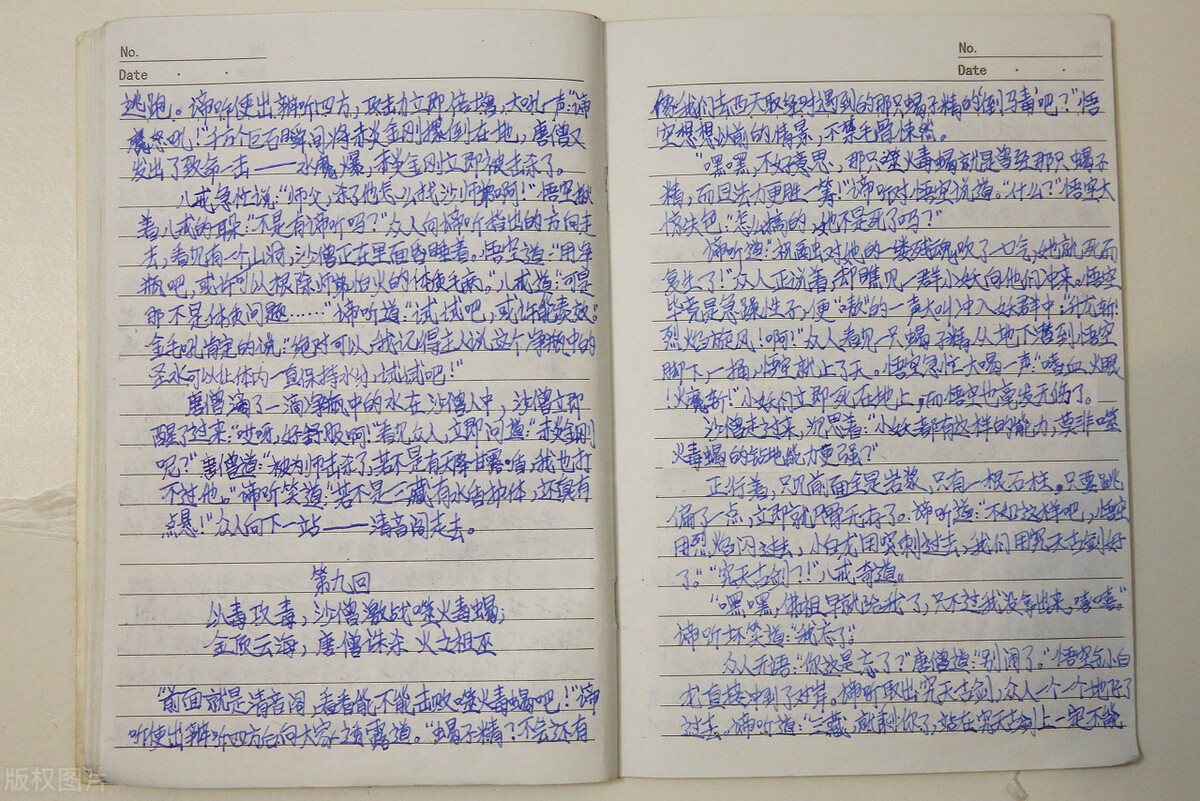 No.
Date
逃跑。谛听使出辨听四方,攻击力立即倍增,大吼一声:"谛
魔怒吼!"千万个巨石瞬间将赤炎金刚撂倒在地,唐僧又
发出了致命一击——水魔爆,赤炎金刚立即被击杀了。
八戒急忙说:"师父,杀了他怎么找沙师弟啊!"悟空揪
着八戒的耳朵:"不是有谛听吗?"众人向谛听指出的方向走
去,看见有一个山洞,沙僧正在里面昏睡着。悟空道:"用净
瓶吧,或许可以根除师弟怕火的体质毛病。"八戒道:"可是
那不是体质问题……"谛听道:"试试吧,或许能奏效。"
金毛吼肯定的说:"绝对可以,我记得主人说这个净瓶中的
圣水可以让体内一直保持水分,试试吧!"
唐僧滴了一滴净瓶中的水在沙僧人中,沙僧立即
醒了过来:"哎呀,好舒服啊!"看见众人,立即问道:"赤炎金刚
呢?"唐僧道:"被为师击杀了,若不是有天降甘露咒,我也打
不过他。"谛听笑道:"若不是三藏有水的护体,还真有
点悬!"众人向下一站——清音阁走去。
第九回
以毒攻毒,沙僧激战噬火毒蝎;
金顶云海,唐僧诛杀火之祖巫
"前面就是清音阁,看看能不能击败噬火毒蝎吧!"谛
听使出辨听四方后向大家透露道。"蝎子精?不会还有
No.
Date
像我们去西天取经时遇到的那只蝎子精的'倒马毒'吧?"悟
空想想以前的情景,不禁毛骨悚然。
"嘿嘿,不好意思,那只噬火毒蝎就是曾经那只蝎子
精,而且法力更胜一筹!"谛听对悟空说道。"什么?"悟空大
惊失色:"怎么搞的,她不是死了吗?"
谛听道:"祝融对他的一缕残魂吹了一口气,她就死而
复生了!"众人正说着,却瞧见一群小妖向他们冲来。悟空
毕竟是急躁性子,便"嗷"的一声大叫冲入妖群中:"升龙斩!
烈焰旋风!啊!"众人看见一只蝎子精从地下遁到悟空
脚下,一捅,悟空就上了天。悟空急忙大喝一声:"嗜血火眼
!火魔斩!"小妖们立即死在地上,而悟空也毫发无伤了。
沙僧走了过来,沉思着:"小妖都有这样的能力,莫非噬
火毒蝎的钻地能力更强?"
正行着,只见前面全是岩浆,只有一根石柱。只要跳
偏了一点,立即就尸骨无存了。谛听道:"不如这样吧,悟空
用烈焰闪过去,小白龙用突刺过去,我们用究天古剑好
了。""究天古剑?!"八戒奇道。
"嘿嘿,佛祖早就给我了,只不过我没拿出来,嘻嘻。"
谛听坏笑道:"我忘了。"
众人无语:"你这是忘了?"唐僧道:"别闹了。"悟空与小白
龙直接冲到了对岸。谛听取出究天古剑,众人一个一个地飞了
过去。谛听道:"三藏,就剩你了,站在究天古剑上一定不能
版权图片